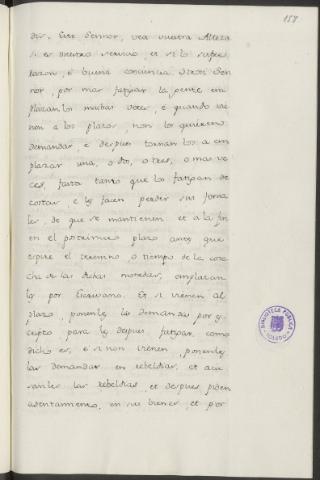 157
dir. Este Sennor, vea vuestra Alteza
si es vuestro servicio, et si lo sufre
razon, è buena conciencia. Otrosi Sen
nor, por mas fatigar la gente em
plazanlos muchas veces, è quando vie
nen a los plazos, non los quieren
demandar, è despues tornan los a em
plazar una, o dos, o tres, o mas ve
ces, fasta tanto que los fatigan de
costas, e les facen perder sus jorna
les, de que se mantienen et a la fin
en el postrimero plazo antes que
espire el termino, o tiempo de la cose
cha de las dichas monedas, emplazan
los por Escrivano. Et si vienen al
plazo, ponenles las demandas por es
cripto para los despues fatigar, como
dicho es, è si non vienen, ponenles
las demandas en rebeldias, et acu
sanles las rebeldias, et despues piden
asentamiento, en sus bienes, et por
BIBLIOTECA PUBLICA
TOLEDO